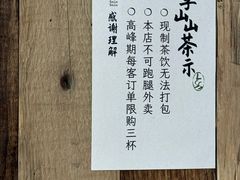 山山茶示
○ 现制茶饮无法打包
○ 本店不可跑腿外卖
○ 高峰期每客订单限购三杯
感谢理解